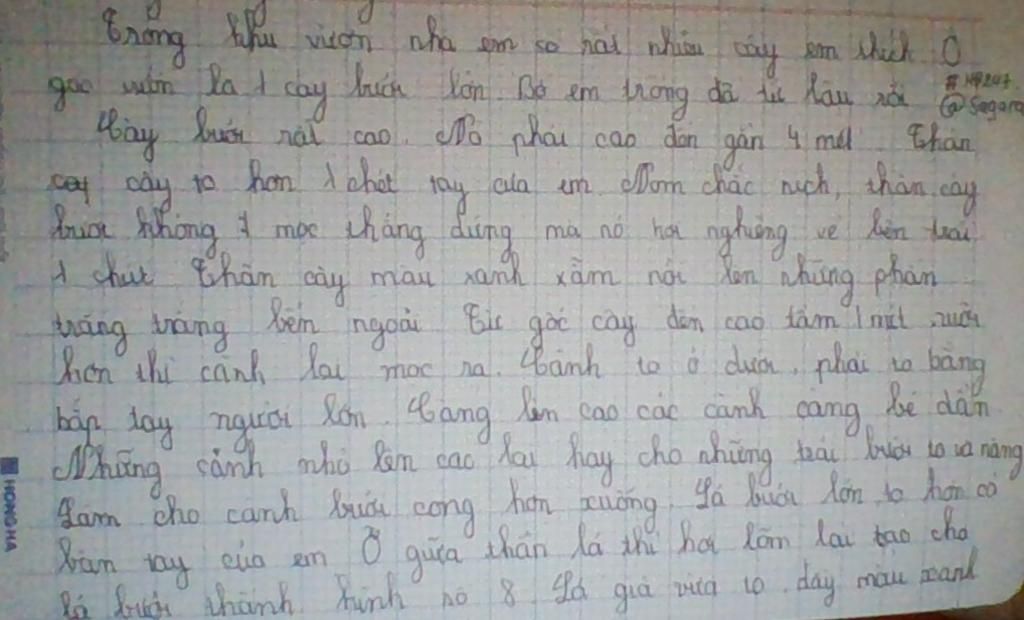 Trong khu vườn nhà em có rất nhiều cây em thích. Ở
góc vườn là 1 cây bưởi lớn. Bố em trồng đã từ lâu rồi
#HP247
@Sagara
Cây bưởi rất cao. Nó phải cao đến gần 4 mét. Thân
cây to hơn 1 chét tay của em. Nom chắc nịch, thân cây
bưởi không mọc thẳng đứng mà nó hơi nghiêng về bên trái
1 chút. Thân cây màu xanh xẫm nổi lên những phần
trăng trắng bên ngoài. Từ gốc cây đến cao tầm 1 mét rưỡi
hơn thì cành lại mọc ra. Cành to ở dưới, phải to bằng
bắp tay người lớn. Càng lên cao các cành càng bé dần.
Những cành nhỏ lên cao lại hay cho những trái bưởi to và nặng
Làm cho cành bưởi cong hơn xuống. Lá bưởi lớn to hơn cả
bàn tay của em. Ở giữa thân lá thì hơi lõm lại tạo cho
lá bưởi thành hình số 8. Lá già vừa to, dày màu xanh
HONG HA